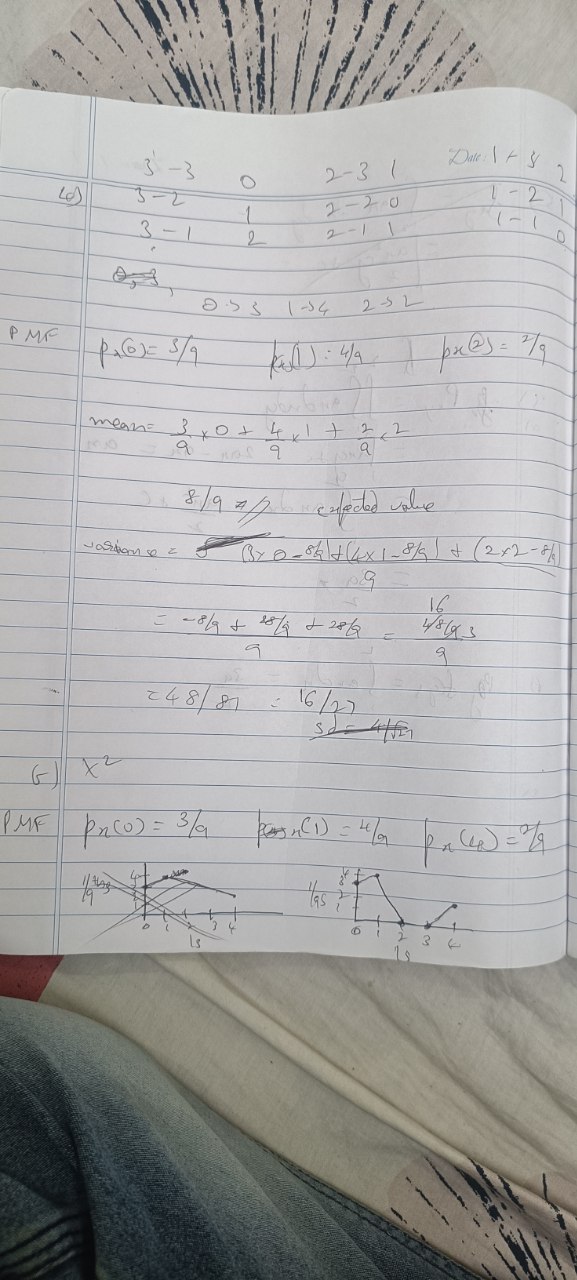 Date: 1 - 3 2
3 - 3 0 2 - 3 1
4) 3 - 2 1 2 - 2 0 1 - 2 1
3 - 1 2 2 - 1 1 1 - 1 0
0 -> 3 1 -> 4 2 -> 2
PMF px(0) = 3/9 px(1) = 4/9 px(2) = 2/9
mean = 3/9 x 0 + 4/9 x 1 + 2/9 x 2
8/9 expected value
variance = (3x0 - 8/9) + (4x1 - 8/9) + (2x2 - 8/9) / 9
= -8/9 + 28/9 + 28/9 / 9 = 16 48/9 3 / 9
= 48/81 = 16/27
sd = 4/√27
5) X²
PMF px(0) = 3/9 px(1) = 4/9 px(4) = 2/9
4 3 2 1
1/9s
0 1 2 3 4
1s